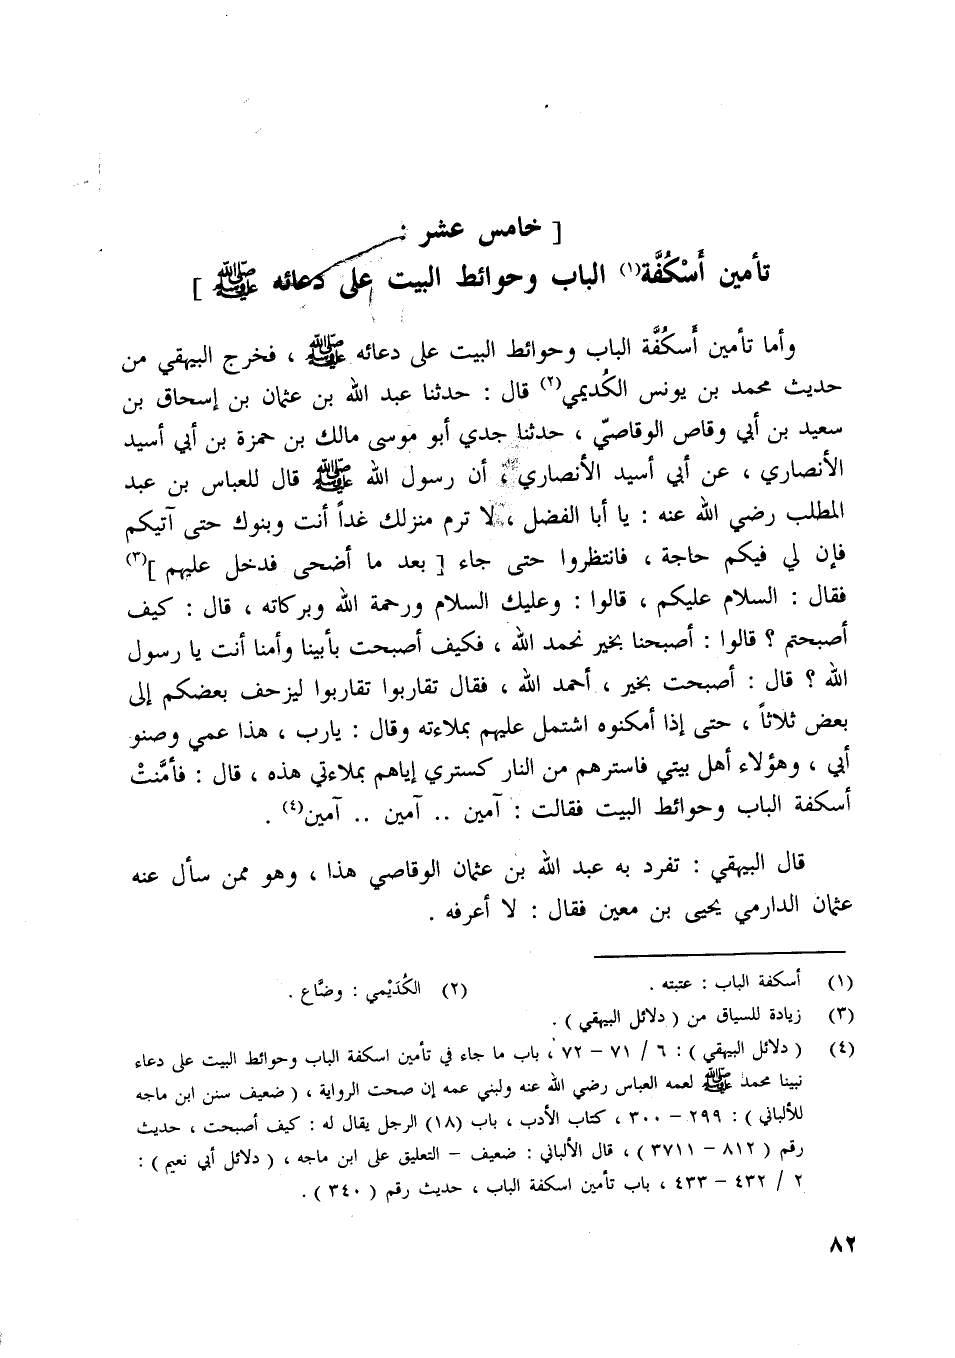 [ خامس عشر :
تأمين أَسْكُفَّة(١) الباب وحوائط البيت على دعائه ﷺ ]
وأما تأمين أَسكُفَّة الباب وحوائط البيت على دعائه ﷺ ، فخرج البيهقي من
حديث محمد بن يونس الكُديمي(٢) قال : حدثنا عبد الله بن عثمان بن إسحاق بن
سعيد بن أبي وقاص الوقاصيّ ، حدثنا جدي أبو موسى مالك بن حمزة بن أبي أسيد
الأنصاري ، عن أبي أسيد الأنصاري ، أن رسول الله ﷺ قال للعباس بن عبد
المطلب رضي الله عنه : يا أبا الفضل ، لا ترم منزلك غداً أنت وبنوك حتى آتيكم
فإن لي فيكم حاجة ، فانتظروا حتى جاء [ بعد ما أضحى فدخل عليهم ](٣)
فقال : السلام عليكم ، قالوا : وعليك السلام ورحمة الله وبركاته ، قال : كيف
أصبحتم ؟ قالوا : أصبحنا بخير نحمد الله ، فكيف أصبحت بأبينا وأمنا أنت يا رسول
الله ؟ قال : أصبحت بخير ، أحمد الله ، فقال تقاربوا تقاربوا ليزحف بعضكم إلى
بعض ثلاثاً ، حتى إذا أمكنوه اشتمل عليهم بملاءته وقال : يارب ، هذا عمي وصنو
أبي ، وهؤلاء أهل بيتي فاسترهم من النار كستري إياهم بملاءتي هذه ، قال : فأمَّنتْ
أسكفة الباب وحوائط البيت فقالت : آمين .. آمين .. آمين(٤) .
قال البيهقي : تفرد به عبد الله بن عثمان الوقاصي هذا ، وهو ممن سأل عنه
عثمان الدارمي يحيى بن معين فقال : لا أعرفه .
(١) أسكفة الباب : عتبته . (٢) الكُدَيْمي : وضَّاع .
(٣) زيادة للسياق من ( دلائل البيهقي ) .
(٤) ( دلائل البيهقي ) : ٦ / ٧١ – ٧٢ ، باب ما جاء في تأمين اسكفة الباب وحوائط البيت على دعاء
نبينا محمد ﷺ لعمه العباس رضي الله عنه ولبني عمه إن صحت الرواية ، ( ضعيف سنن ابن ماجه
للألباني ) : ٢٩٩ – ٣٠٠ ، كتاب الأدب ، باب (١٨) الرجل يقال له : كيف أصبحت ، حديث
رقم ( ٨١٢ – ٣٧١١ ) ، قال الألباني : ضعيف – التعليق على ابن ماجه ، ( دلائل أبي نعيم ) :
٢ / ٤٣٢ – ٤٣٣ ، باب تأمين اسكفة الباب ، حديث رقم ( ٣٤٠ ) .
٨٢